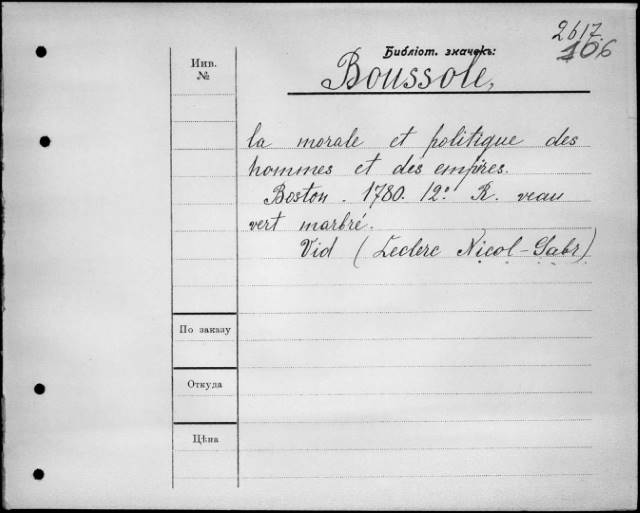 2617.
106
Библіот. значекъ:
Boussole,
Инв.
№
la morale et politique des
hommes et des empires.
Boston. 1780. 12º R. veau
vert marbré.
Vid (Leclerc Nicol-Gabr)
По заказу
Откуда
Цѣна